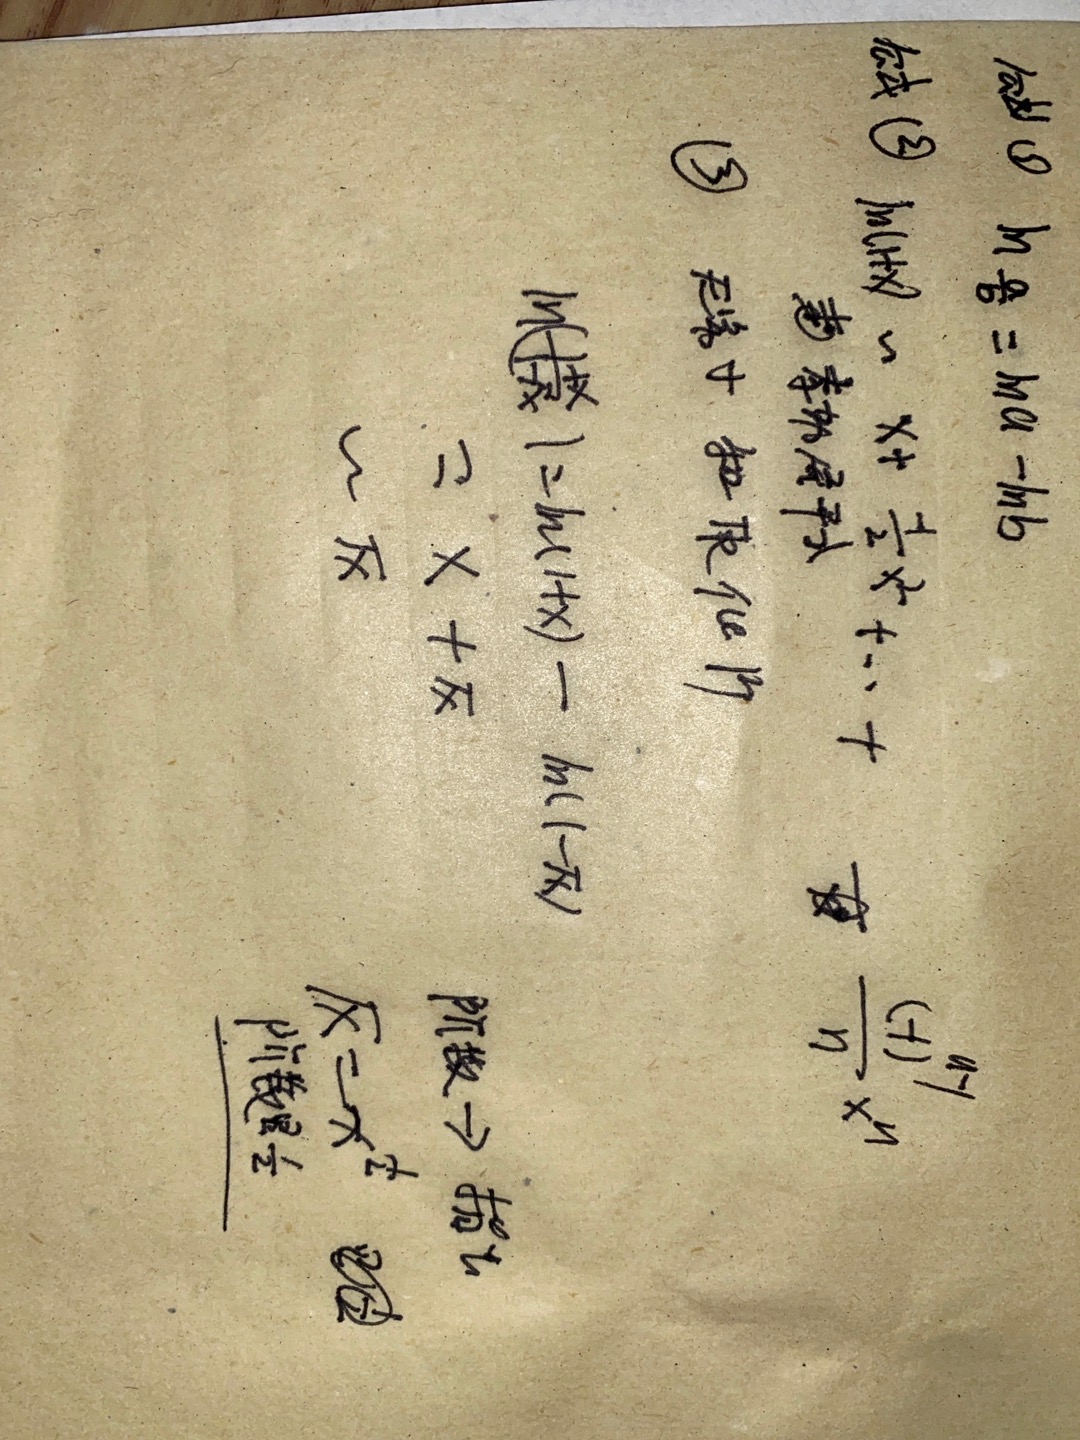 公式① ln a/b = lna - lnb
公式② ln(1+x) ~ x + 1/2 x² + ... + (-1)^(n-1)/n x^n
泰勒展开式
③ 无穷小 加 取低阶
ln((1+x)/(1-√x)) = ln(1+x) - ln(1-√x)
= x + √x
~ √x
阶数 → 指数
√x = x^(1/2)
阶数是 1/2